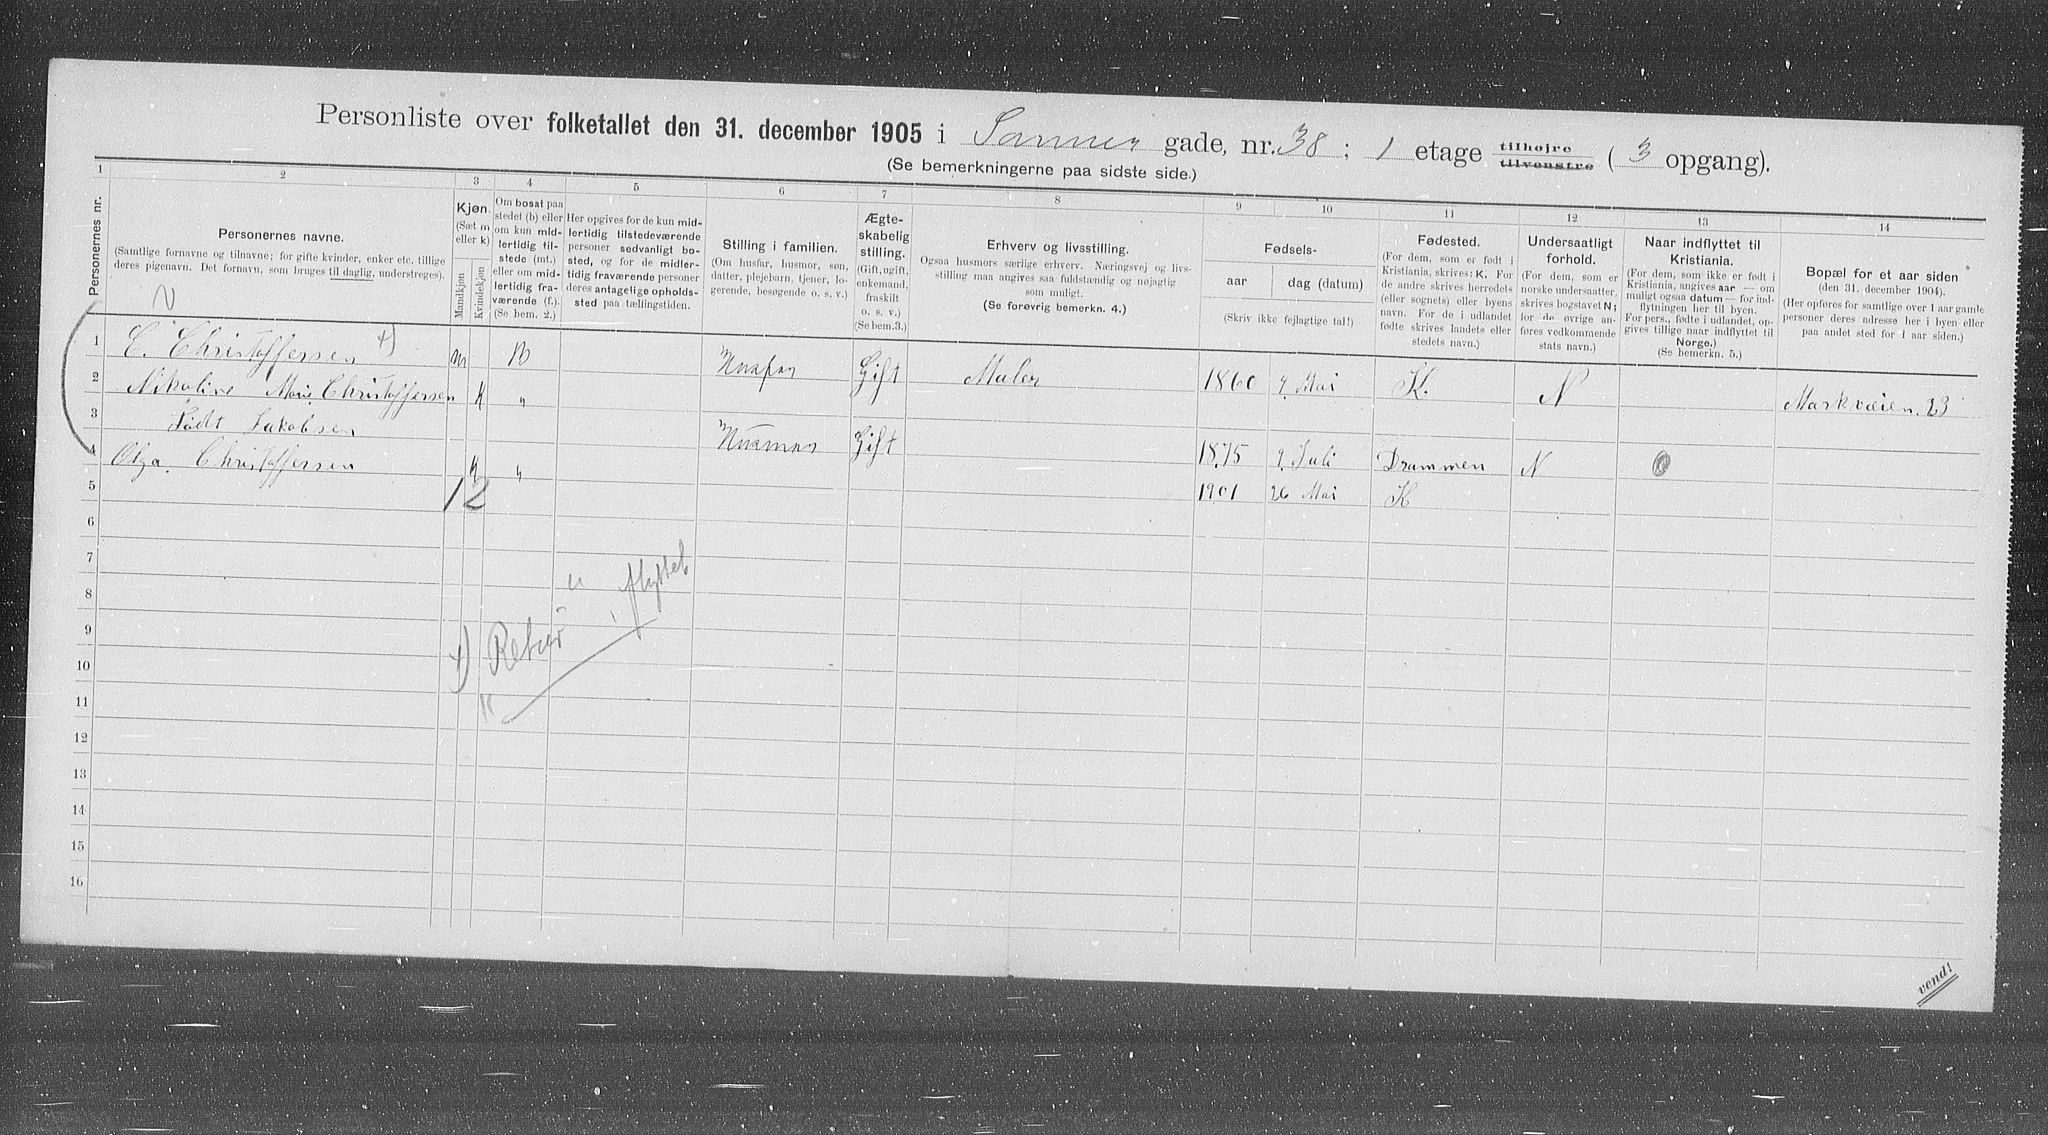 Personliste over folketallet den 31. december 1905 i Sanner gade, nr. 38 ; 1 etage tilhøjre tilvenstre ( 3 opgang).
(Se bemerkningerne paa sidste side.)
1 2 3 4 5 6 7 8 9 10 11 12 13 14
Personernes nr.
Personernes navne.
(Samtlige fornavne og tilnavne; for gifte kvinder, enker etc. tillige deres pigenavn. Det fornavn, som bruges til daglig, understreges).
Kjøn.
(Sæt m eller k)
Mandkjøn
Kvindekjøn
Om bosat paa stedet (b) eller om kun midlertidig tilstede (mt.) eller om midlertidig fraværende (f.).
(Se bem. 2.)
Her opgives for de kun midlertidig tilstedeværende personer sedvanligt bosted, og for de midlertidig fraværende personer deres antagelige opholdssted paa tællingstiden.
Stilling i familien.
(Om husfar, husmor, søn, datter, plejebarn, tjener, logerende, besøgende o. s. v.)
Ægteskabelig stilling.
(Gift, ugift, enkemand, fraskilt o. s. v.)
(Se bem. 3.)
Erhverv og livsstilling.
Ogsaa husmors særlige erhverv. Næringsvej og livsstilling maa angives saa fuldstændig og nøjagtig som muligt.
(Se forøvrig bemerkn. 4.)
Fødsels-
aar
dag (datum)
(Skriv ikke fejlagtige tal!)
Fødested.
(For dem, som er født i Kristiania, skrives: K. For de andre skrives herredets (eller sognets) eller byens navn. For de i udlandet fødte skrives landets eller stedets navn.)
Undersaatligt forhold.
(For dem, som er norske undersaatter, skrives bogstavet N; for de øvrige anføres vedkommende stats navn.)
Naar indflyttet til Kristiania.
(For dem, som ikke er født i Kristiania, angives aar — om muligt ogsaa datum — for indflytningen her til byen. For pers., fødte i udlandet, opgives tillige naar indflyttet til Norge.)
(Se bemerkn. 5.)
Bopæl for et aar siden
(den 31. december 1904).
(Her opføres for samtlige over 1 aar gamle personer deres adresse her i byen eller paa andet sted for 1 aar siden.)
1 C. Christoffersen x) m B Husfar Gift Maler 1860 9 Mai K. N Markveien. 23
2 Nikoline Marie Christoffersen K "
3 Født Jakobsen Husmor Gift 1875 9 Juli Drammen N
4 Olga. Christoffersen K "
5 12 1901 26 Mai K
6
7
8
9
x) Retur flyttet
10
11
12
13
14
15
16
vend!